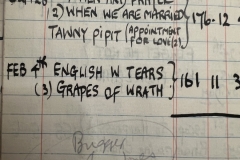 2) WHEN WE ARE MARRIED 176-12-
TAWNY PIPIT (APPOINTMENT FOR LOVE (2)
FEB 4th ENGLISH W TEARS
(3) GRAPES OF WRATH 161 11 3
Bugger